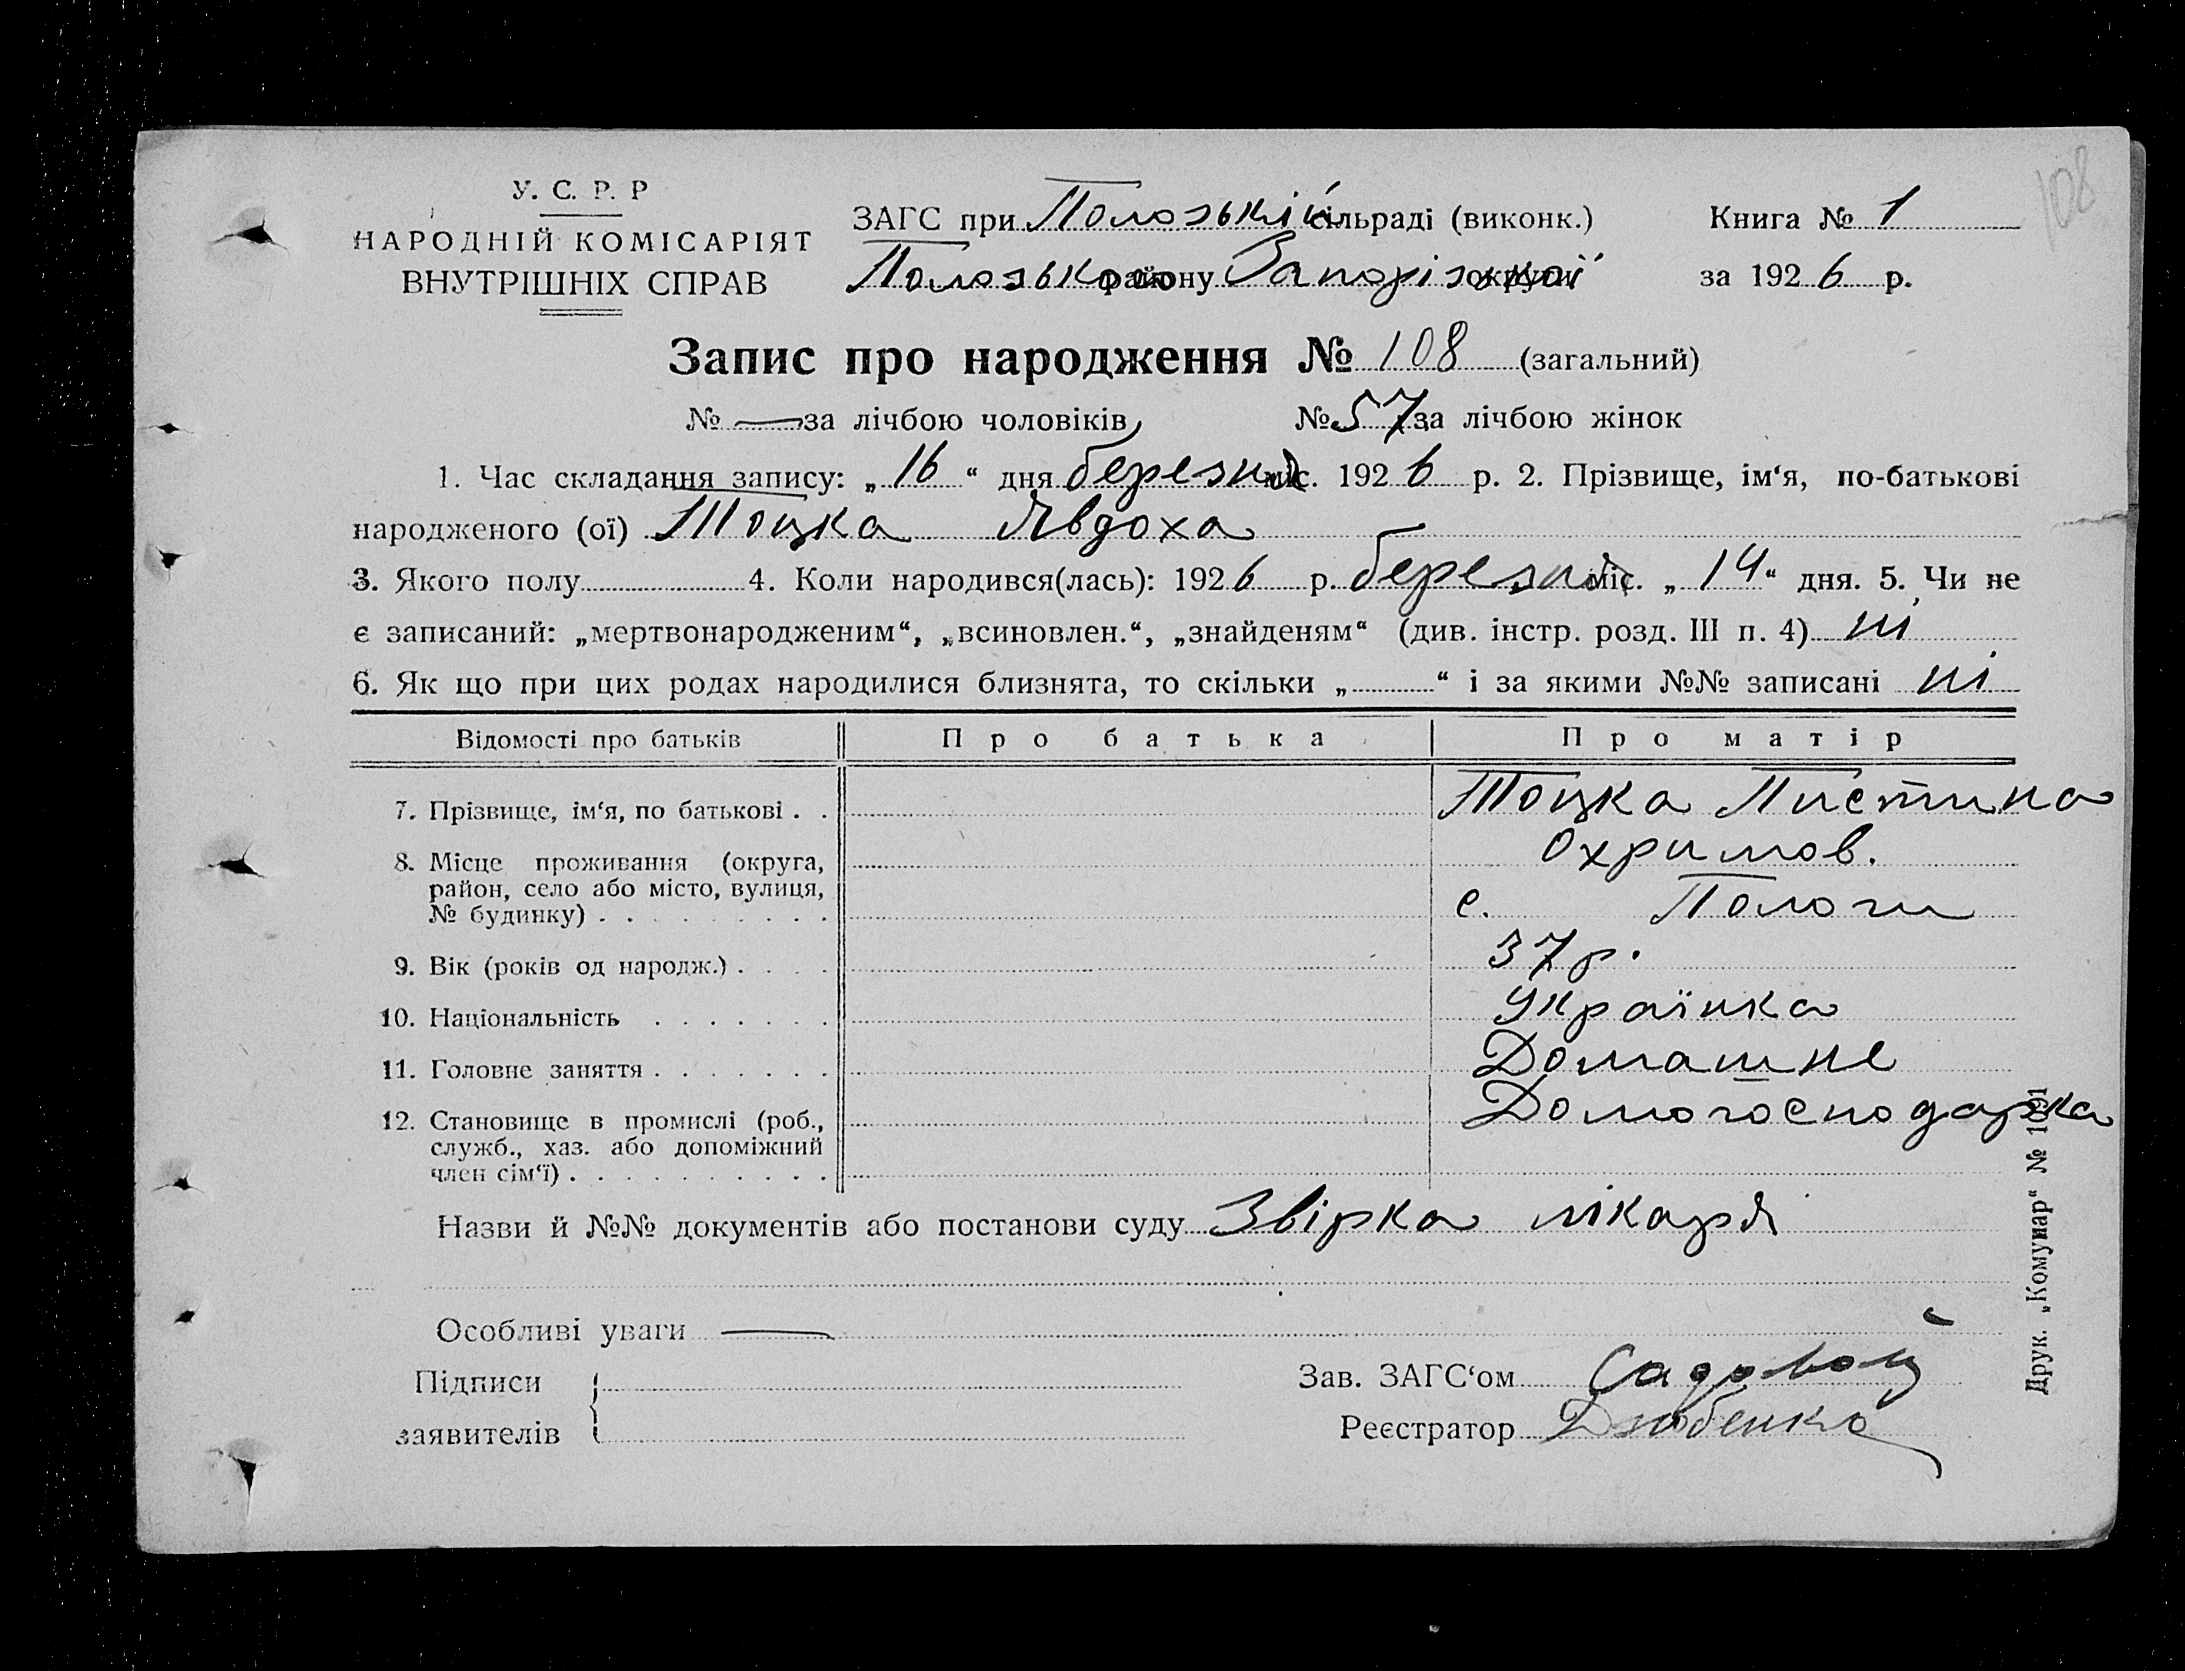 108
У. С. Р. Р
НАРОДНІЙ КОМІСАРІЯТ
ВНУТРІШНІХ СПРАВ
ЗАГС при Положській сільраді (виконк.)
Положського району Запорізької округи
Книга № 1
за 1926 р.
Запис про народження № 108 (загальний)
№ — за лічбою чоловіків, № 57 за лічбою жінок
1. Час складання запису: „16“ дня березня міс. 1926 р. 2. Прізвище, ім‘я, по-батькові
народженого (ої) Тоцка Явдоха
3. Якого полу 4. Коли народився(лась): 1926 р. березня міс. „14“ дня. 5. Чи не
є записаний: „мертвонародженим“, „всиновлен.“, „знайденям“ (див. інстр. розд. III п. 4) ні
6. Як що при цих родах народилися близнята, то скільки „ “ і за якими №№ записані ні
Відомості про батьків Про батька Про матір
7. Прізвище, ім‘я, по батькові . . Тоцка Пистина
Охримов.
8. Місце проживання (округа,
район, село або місто, вулиця,
№ будинку) . . . . . . . . . с. Пологи
9. Вік (років од народж.) . . . . 37 р.
10. Національність . . . . . . . Українка
11. Головне заняття . . . . . . . Домашне
12. Становище в промислі (роб., Домогосподарка
служб., хаз. або допоміжний
член сім‘ї) . . . . . . . . . .
Назви й №№ документів або постанови суду Звірка лікаря
Особливі уваги —
Підписи
заявителів
Зав. ЗАГС‘ом Садовой
Реєстратор Дзюбенко
Друк. „Комунар“ № 1091